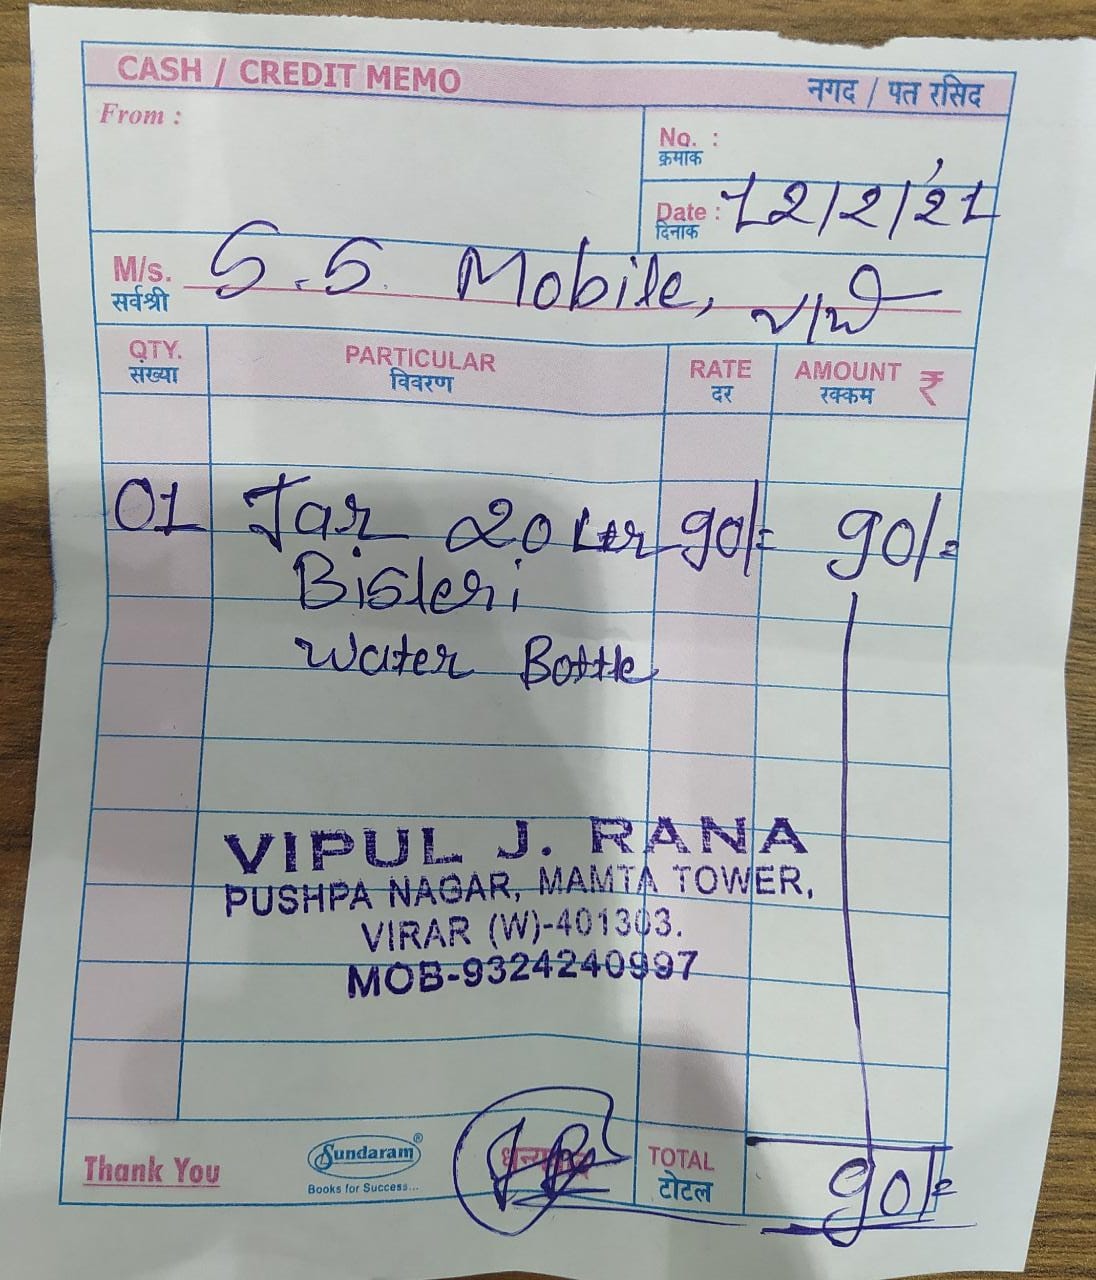 CASH / CREDIT MEMO
नगद / पत रसिद
From :
No. :
क्रमांक
Date : 12/2/21
दिनांक
M/s. S.S. Mobile,
सर्वश्री
QTY. PARTICULAR RATE AMOUNT ₹
संख्या विवरण दर रक्कम
01 Jar 20 Ltr 90/= 90/=
Bisleri
Water Bottle
VIPUL J. RANA
PUSHPA NAGAR, MAMTA TOWER,
VIRAR (W)-401303.
MOB-9324240997
Thank You
Sundaram®
Books for Success...
धन्यवाद
TOTAL 90/=
टोटल